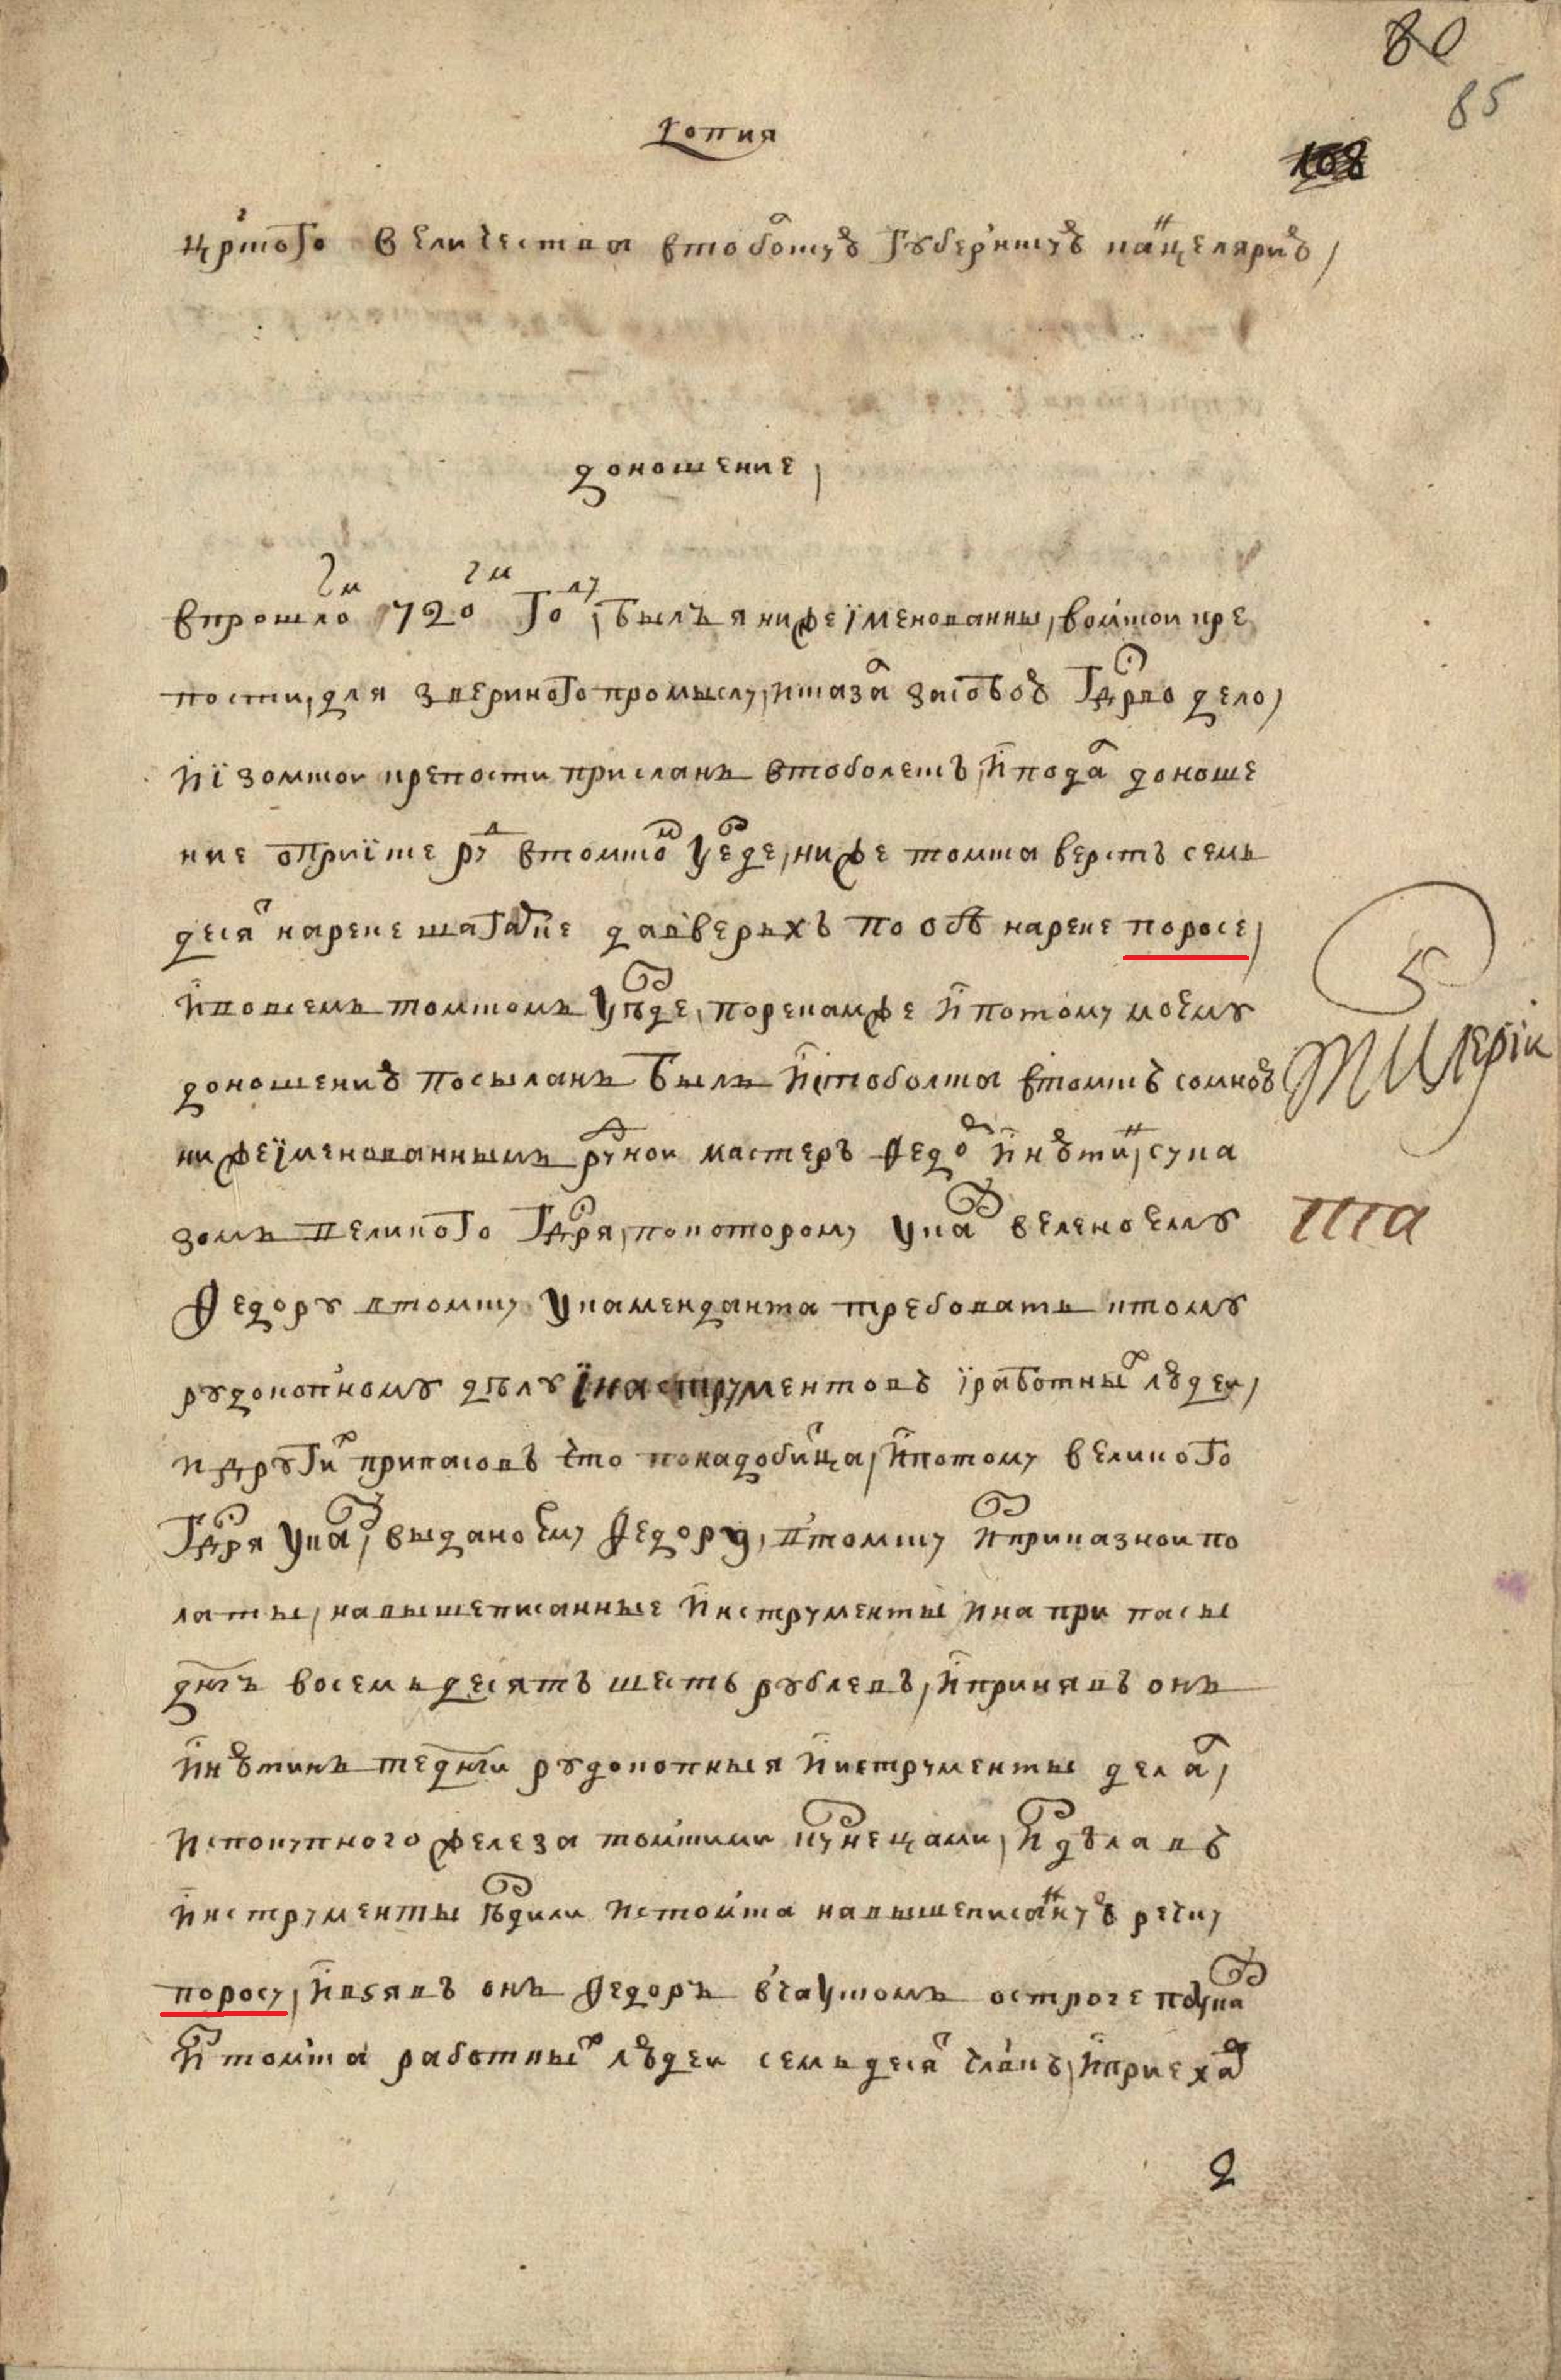 80
85
108
копия
црског величества втоболскую губернскую канцелярию
доношение,
впрошлом 720м году, былъ я нижеїменованны, вомской кре
пости, для звериного промыслу, исказал засобою гдрво дело,
и їзомской крепости присланъ втоболескъ, и подал доноше
ние оприїске руд втомском уезде, ниже томска верстъ семь
десят нареке шагарке давверьхъ по обѣ нареке поросе,
и повсемъ томскомъ уѣзде, порекамже и потому моему
доношению посыланъ былъ истоболска втомскъ сомною
нижеїменованнымъ рудной мастеръ Федор инютин, сука
зомъ великого гдря, покоторому указ веленоему
Федору втомску укаменданта требовать ктому
рудокопному дѣлу їнаструментовъ їработных людеи,
и других припасовъ что понадобица, и потому великого
гдря указу, выдано ему Федору, втомску ис приказнои по
латы, навышеписанные инструменты и на при пасы
днгъ восемьдесятъ шесть рублевъ, и принявъ онъ
инютинъ теднги рудокопныя инструменты делал,
ис покупного железа томскими кузнецами, и здѣлавъ
инструменты ѣздили истомска навышеписанную речку
поросу, и взявъ онъ Федоръ вчаускомъ остроге поуказ
ис томска работных людеи семьдесят члвкъ, и приехал
5
та
2